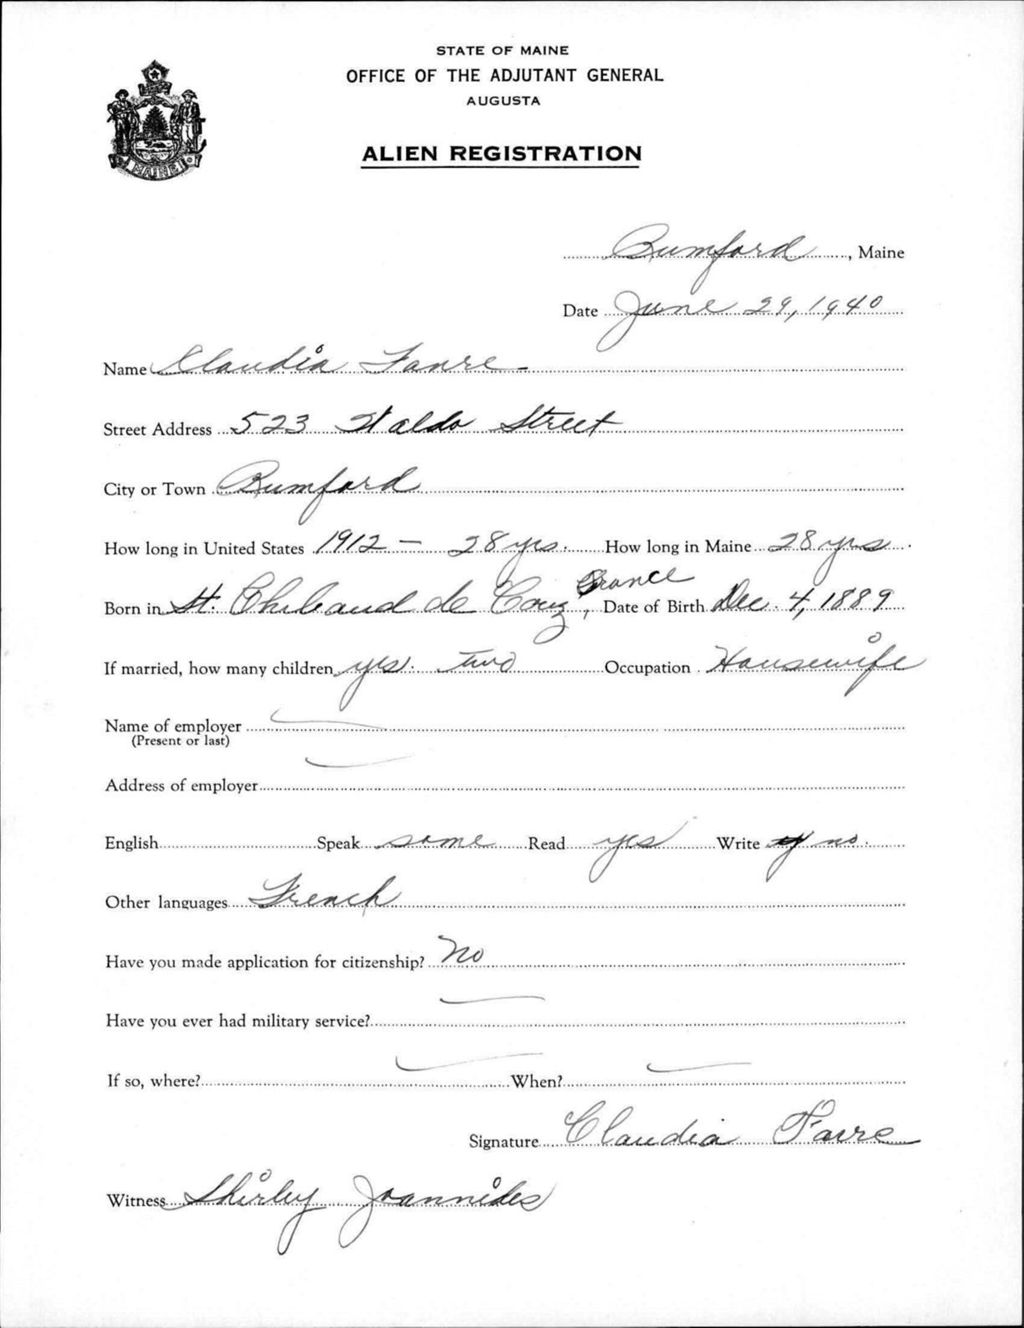 STATE OF MAINE
OFFICE OF THE ADJUTANT GENERAL
AUGUSTA
ALIEN REGISTRATION
MAINE
Rumford, Maine
Date June 29, 1940
Name Claudia Favre
Street Address 523 Waldo Street
City or Town Rumford
How long in United States 1912 - 28 yrs. How long in Maine 28 yrs.
Born in St. Thibaud de Couz, France Date of Birth Dec. 4, 1889
If married, how many children yes. two Occupation Housewife
Name of employer
(Present or last)
Address of employer
English Speak some Read yes Write no.
Other languages French
Have you made application for citizenship? No
Have you ever had military service?
If so, where? When?
Signature Claudia Favre
Witness Shirley Joannides